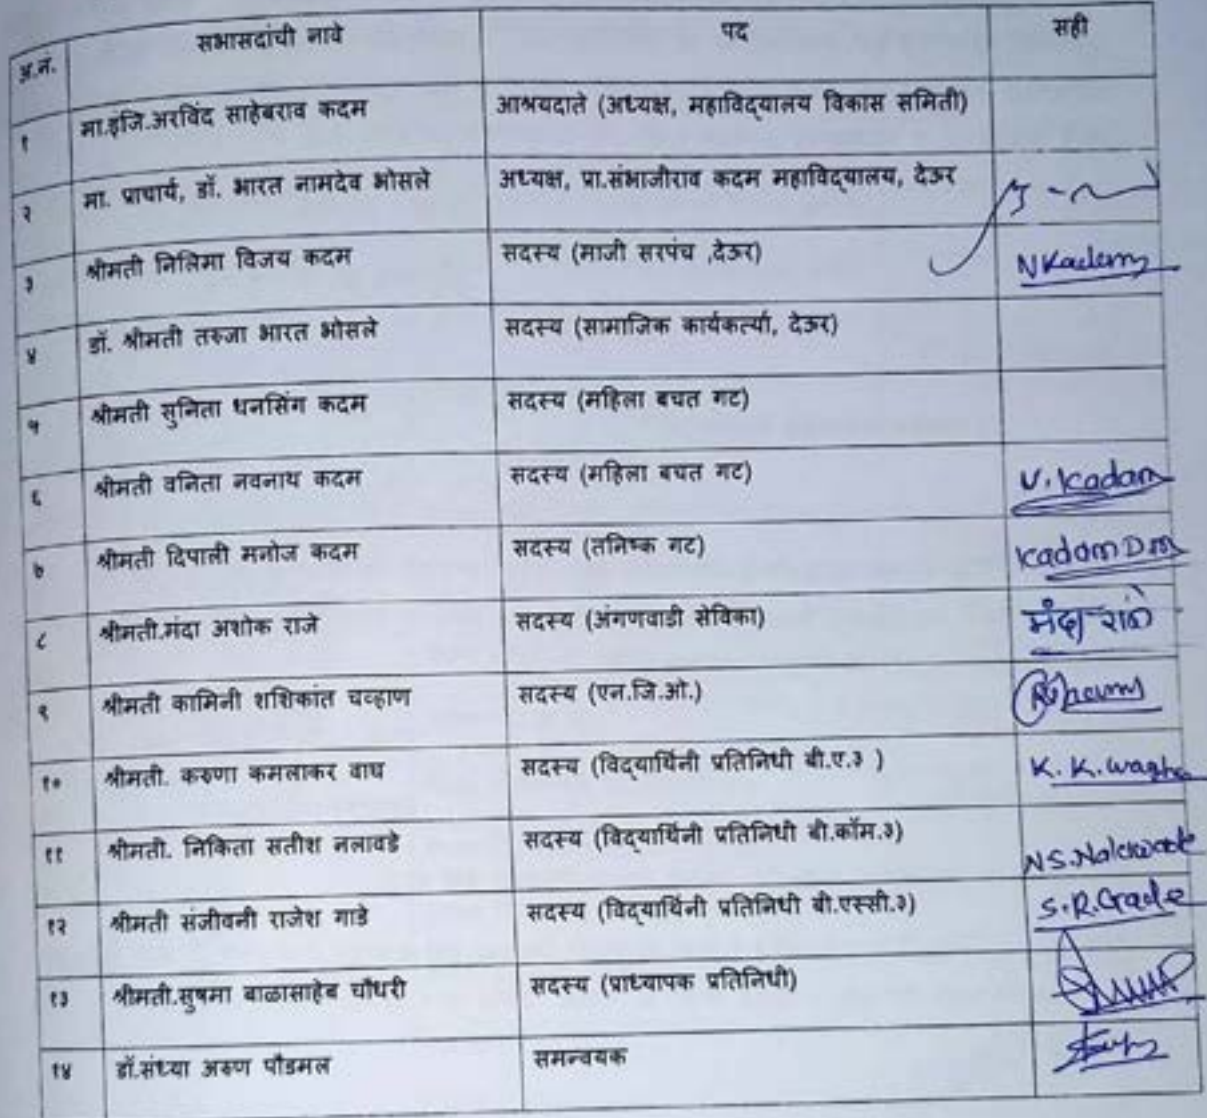 अ.नं. सभासदांची नावे पद सही
१ मा.इंजि.अरविंद साहेबराव कदम आश्रयदाते (अध्यक्ष, महाविद्यालय विकास समिती)
२ मा. प्राचार्य, डॉ. भारत नामदेव भोसले अध्यक्ष, प्रा.संभाजीराव कदम महाविद्यालय, देऊर
३ श्रीमती निलिमा विजय कदम सदस्य (माजी सरपंच ,देऊर) NKadam
४ डॉ. श्रीमती तरुजा भारत भोसले सदस्य (सामाजिक कार्यकर्त्या, देऊर)
५ श्रीमती सुनिता धनसिंग कदम सदस्य (महिला बचत गट)
६ श्रीमती वनिता नवनाथ कदम सदस्य (महिला बचत गट) V. Kadam
७ श्रीमती दिपाली मनोज कदम सदस्य (तनिष्क गट) Kadam Dm
८ श्रीमती.मंदा अशोक राजे सदस्य (अंगणवाडी सेविका) मंदा राजे
९ श्रीमती कामिनी शशिकांत चव्हाण सदस्य (एन.जि.ओ.)
१० श्रीमती. करुणा कमलाकर वाघ सदस्य (विद्यार्थिनी प्रतिनिधी बी.ए.३ ) K. K. Wagh
११ श्रीमती. निकिता सतीश नलावडे सदस्य (विद्यार्थिनी प्रतिनिधी बी.कॉम.३) N S. Nalawade
१२ श्रीमती संजीवनी राजेश गाडे सदस्य (विद्यार्थिनी प्रतिनिधी बी.एस्सी.३) S. R. Gade
१३ श्रीमती.सुषमा बाळासाहेब चौधरी सदस्य (प्राध्यापक प्रतिनिधी)
१४ डॉ.संध्या अरुण पौडमल समन्वयक